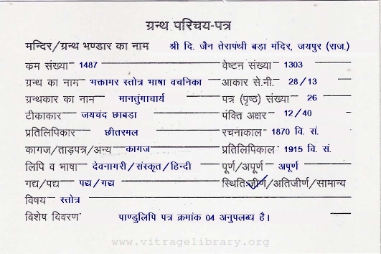 ग्रन्थ परिचय-पत्र
मन्दिर/ग्रन्थ भण्डार का नाम श्री दि. जैन तेरापंथी बड़ा मंदिर, जयपुर (राज.)
क्रम संख्या 1487 वेष्टन संख्या 1303
ग्रन्थ का नाम भक्तामर स्तोत्र भाषा वचनिका आकार से.मी. 28/13
ग्रन्थकार का नाम मानतुंगाचार्य पत्र (पृष्ठ) संख्या 26
टीकाकार जयचंद छाबड़ा पंक्ति अक्षर 12/40
प्रतिलिपिकार छीतरमल रचनाकाल 1870 वि. सं.
कागज/ताड़पत्र/अन्य कागज प्रतिलिपिकाल 1915 वि. सं.
लिपि व भाषा देवनागरी/संस्कृत/हिन्दी पूर्ण/अपूर्ण अपूर्ण
गद्य/पद्य पद्य/गद्य स्थिति जीर्ण/अतिजीर्ण/सामान्य
विषय स्तोत्र
विशेष विवरण पाण्डुलिपि पत्र क्रमांक 04 अनुपलब्ध है।
www.vitragelibrary.org